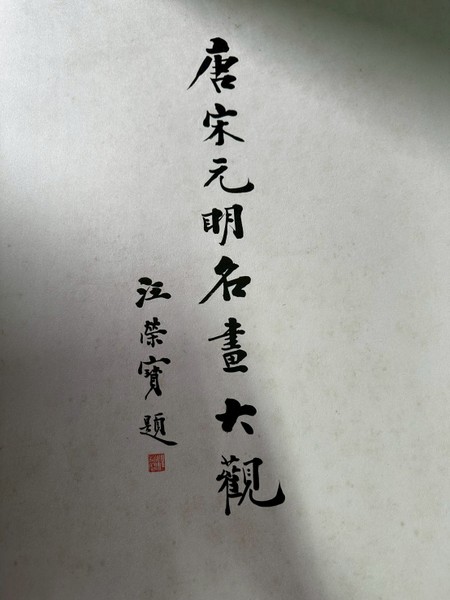 唐宋元明名畫大觀
汪榮寶題